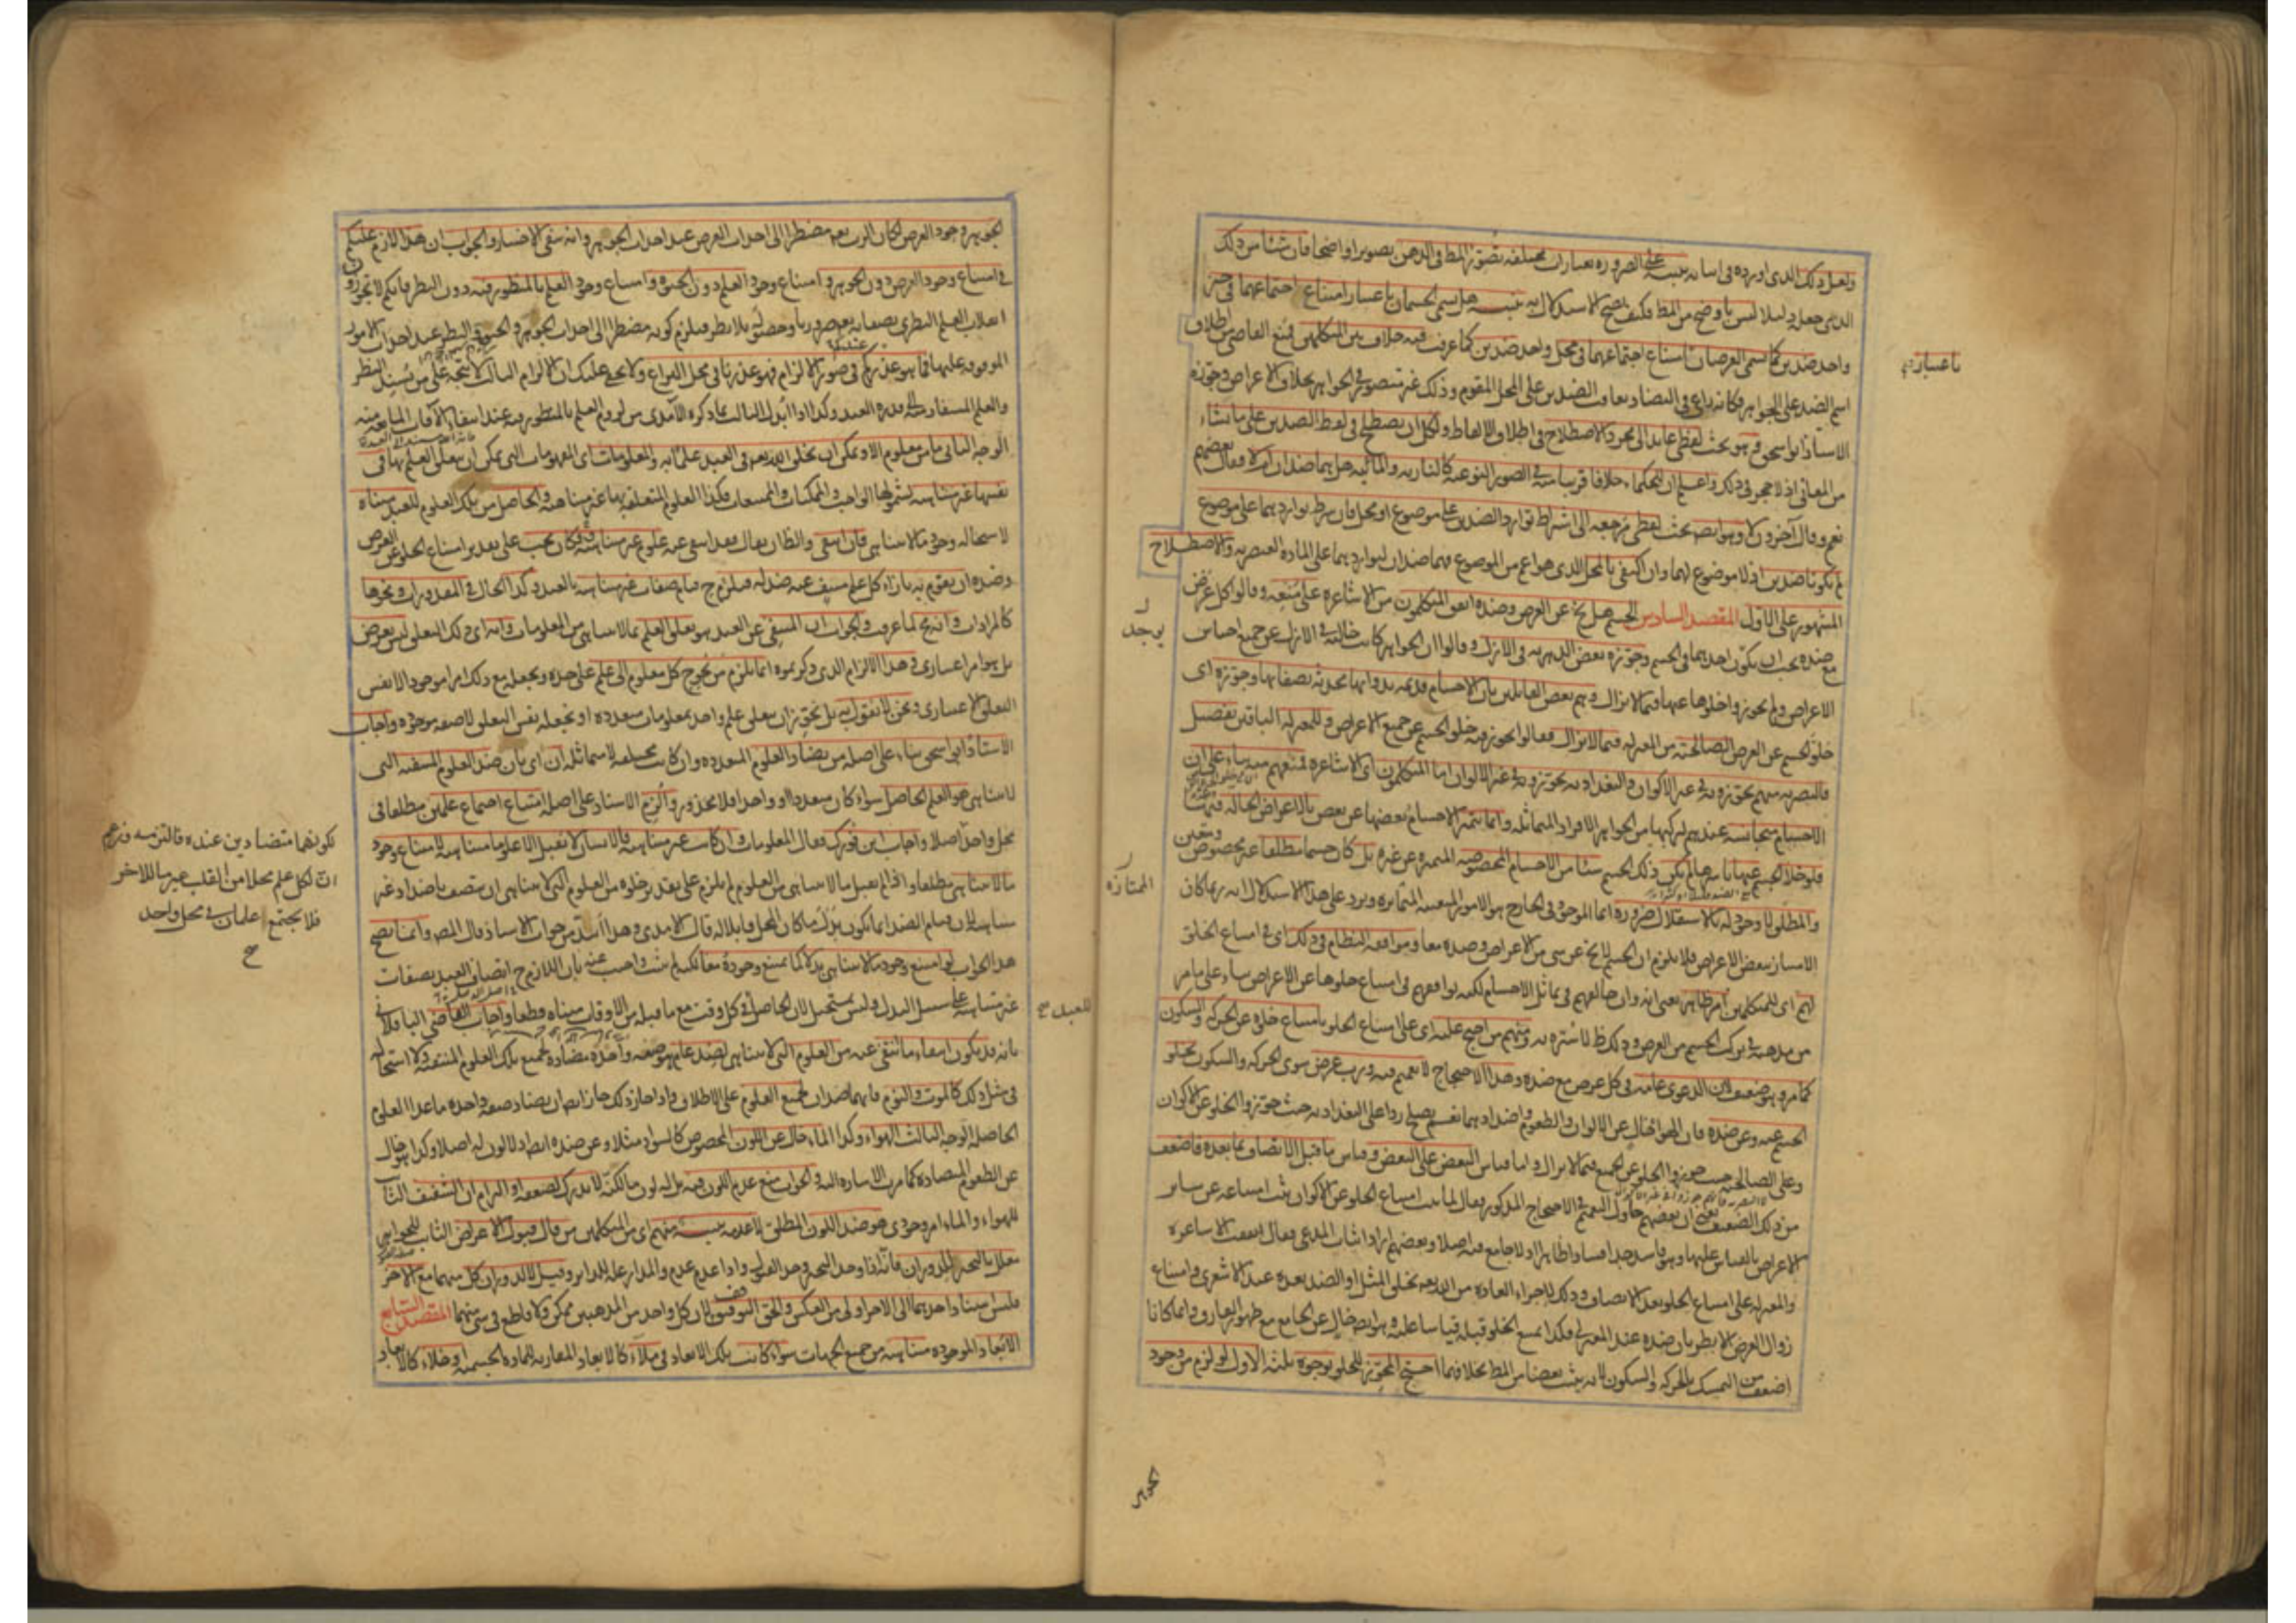 ولعل ذلك الذي اورده في اساته تنبيه على الضرورة بعبارات مختلفة تصور المط في الذهن تصويرا واضحا فان شئا من ذلك
الذي جعله دليلا ليس باوضح من المط فكيف يصح الاستدلال به تنبيه هل يسمى الجسمان باعتبار امتناع اجتماعهما في حيز
واحد ضدين كما يسمى العرضان بامتناع اجتماعهما في محل واحد ضدين كما عرفت فيه خلاف بين المتكلمين فمنع القاضي من اطلاق
باعتبار
اسم الضد على الجواهر فكانه راعى في التضاد تعاقب الضدين على المحل المقوم وذلك غير متصور في الجواهر بخلاف الاعراض وجوزه
الاستاذ ابو اسحق وهو بحث لفظي عايد الى مجرد الاصطلاح في اطلاق الالفاظ ولكل ان يصطلح في لفظ الضدين على ما يشاء
من المعاني اذ لا حجر في ذلك واعلم ان للحكماء خلافا قريبا منه في الصور النوعية كالنارية والمائية هل بينهما ضدان ام لا فقال بعضهم
نعم وقال آخرون لا وهو ايضا بحث لفظي مرجعه الى اشتراط توارد الضدين على موضوع او محل فان شرط تواردهما على موضوع
لم يكونا ضدين اذ لا موضوع لهما وان اكتفى بالمحل الذي هو اعم من الموضوع فهما ضدان لتواردهما على المادة العنصرية والاصطلاح
المشهور على الاول المقصد السادس الجسم هل يخ عن العرض وضده اتفق المتكلمون من الاشاعرة على منعه وقالوا كل عرض
يوجد
مع ضده يجب ان يكون احدهما في الجسم وجوزه بعض الدهرية في الازل وقالوا ان الجواهر كانت خالية في الازل عن جميع اجناس
الاعراض ولم يجوزوا خلوها عنها فيما لا يزال وهم بعض القائلين بان الاجسام قديمة بذواتها محدثة بصفاتها وجوزه اى
خلو الجسم عن العرض الصالحية من المعتزلة فيما لا يزال فقالوا يجوز فيه خلو الجسم عن جميع الاعراض وللمعتزلة الباقين تفصيل
فالبصرية منهم يجوزونه في غير الاكوان والبغدادية يجوزونه في غير الالوان اما المتكلمون اى الاشاعرة فمنعهم منه بناء على ان
الاجسام متجانسة عندهم لتركبها من الجواهر الافراد المتماثلة وانما يتميز الاجسام بعضها عن بعض بالاعراض الحالة فيها
فلو خلا الجسم عنها باسرها لم يكن ذلك الجسم شئا من الاجسام المخصوصة المتميزة عن غيره بل كان جسما مطلقا غير مخصوص ومتعين
الممتازة
والمطلق لا وجود له بالاستقلال ضرورة انما الموجود في الخارج هو الامور المتعينة المتمايزة ويرد على هذا الاستدلال انه ربما كان
الامتياز ببعض الاعراض فلا يلزم ان الجسم لا يخ عن شي من الاعراض وضده معا وموافقة النظام في ذلك اى في امتناع الخلو
لهم اى للمتكلمين امر ظاهر يعنى انه وان خالفهم في تماثل الاجسام لكنه يوافقهم في امتناع خلوها عن الاعراض بناء على ما مر
من مذهبه في تركب الجسم من العرض وذلك ظ لا سترة به ومنهم من احتج عليه اى على امتناع الخلو بامتناع خلوه عن الحركة والسكون
كما مر وهو ضعيف لان الدعوى عامة في كل عرض مع ضده وهذا الاحتجاج لا تعميم فيه ورب عرض سوى الحركة والسكون يخلو
الجسم عنه وعن ضده فان الهواء خال عن الالوان والطعوم واضدادهما نعم يصلح ردا على البغدادية حيث جوزوا الخلو عن الاكوان
وعلى الصالحية حيث جوزوا الخلو عن الجميع فيما لا يزال واما قياس البعض على البعض وقياس ما قبل الاتصاف بما بعده فاضعف
من ذلك الضعيف يعنى ان بعضهم حاول التعميم في الاحتجاج المذكور فقال لما ثبت امتناع الخلو عن الاكوان ثبت امتناعه عن سائر
الاعراض بالقياس عليها وهو فاسد جدا فسادا ظاهرا اذ لا جامع فيه اصلا وبعضهم اراد اثبات المدعى فقال اتفقت الاشاعرة
والمعتزلة على امتناع الخلو بعد الاتصاف وذلك لاجراء العادة من الله بعد خلق المثل او الضد بعده عند الاشعري وامتناع
زوال العرض الا بطريان ضده عند المعتزلي فكذا يمتنع الخلو قبله قياسا عليه وهو ايضا خال عن الجامع مع ظهور الفارق وانما كانا
اضعف من التمسك بالحركة والسكون لانه يثبت بعضا من المط بخلافهما احتج المجوز للخلو بوجوه ثلثة الاول لو لزم من وجود
الجوهر
الجوهر وجود العرض لكان الرب تعه مضطرا الى احداث العرض عند احداث الجوهر وانه ينفى الاختيار والجواب ان هذا لازم عليكم
في امتناع وجود العرض دون الجوهر وامتناع وجود العلم دون الحيوة وامتناع وجود العلم بالمنظور فيه دون النظر فانكم لا تجوزون
انقلاب العلم النظري بصفاته ضروريا وحصوله بلا نظر فيلزم كونه مضطرا الى احداث الجوهر والحيوة والنظر عند احداث الامور
الموقوفة عليها فما هو عذركم في صور الالزام فهو عذرنا في محل النزاع ولا يخفى عليك ان الالزام الثالث لا يتجه على من يسند النظر
والعلم المستفاد منه الى قدرة العبد وكذا اذا ابدل الثالث بما ذكره الآمدي من لزوم العلم بالمنظور فيه عند انتفاء الآفات المانعة منه
الوجه الثاني ما من معلوم الا ويمكن ان يخلق الله تعه في العبد علما به والمعلومات اى المفهومات التي يمكن ان يتعلق العلم بها في
نفسها غير متناهية لشمولها الواجب والممكنات والممتنعات فكذا العلوم المتعلقة بها غير متناهية والحاصل من تلك العلوم للعبد متناه
لاستحالة وجود ما لا يتناهى فان انتفى والظ ان يقال فقد انتفى عنه علوم غير متناهية فكان يجب على تقدير امتناع الخلو عن العرض
وضده ان يقوم به بازاء كل علم منتف عنه ضد له فيلزم ح قيام صفات غير متناهية بالعبد وكذا الحال في المقدورات ونحوها
كالمرادات وانه مح لما عرفت والجواب ان المنتفى عن العبد هو تعلق العلم بما لا يتناهى من المعلومات وانه اى ذلك التعلق ليس بعرض
بل هو امر اعتباري وهذا الالزام الذي ذكرتموه انما يلزم من يحوج كل معلوم الى علم على حدة ويجعله مع ذلك امرا موجودا لا نفس
التعلق الاعتباري ونحن لا نقول به بل نجوز ان يتعلق علم واحد بمعلومات متعددة او نجعله نفس التعلق لا صفة موجودة واجاب
الاستاذ ابو اسحق بناء على اصله من تضاد العلوم المتعددة وان كانت مختلفة لا متماثلة بان اى بان ضد العلوم المنتفية التي
لا يتناهى هو العلم الحاصل سواء كان متعددا او واحدا فلا محذور والزم الاستاذ على اصله امتناع اجتماع علمين مطلقا في
كونهما متضادين عنده فالتزمه وزعم
ان لكل علم محلا من القلب غير ما للآخر
فلا يجتمع علمان في محل واحد
محل واحد اصلا واجاب ابن فورك فقال المعلومات وان كانت غير متناهية فالانسان لا يقبل الا علوما متناهية لامتناع وجود
ما لا يتناهى مطلقا واذا لم يقبل ما لا يتناهى من العلوم لم يلزم على تقدير خلوه من العلوم التي لا يتناهى ان يتصف باضداد غير
متناهية لان قيام الضد انما يكون بدل ما كان المحل قابلا له قال الامدي وهذا اسد من جواب الاستاذ قال المص وانما يصح
هذا الجواب لو امتنع وجود ما لا يتناهى بدلا كما يمتنع وجوده معا لكنه لم يثبت واجيب عنه بان اللازم ح اتصاف العبد بصفات
غير متناهية على سبيل البدل وليس بمستحيل لان الحاصل في كل وقت مع ما قبله من الاوقات متناه قطعا واجاب القاضي الباقلاني
للعبد
بانه قد يكون انتفاء ما ينتفى عنه من العلوم التي لا يتناهى لضد عام وصفة واحدة مضادة لجميع تلك العلوم المنتفية ولا استحالة
في مثل ذلك كالموت والنوم فانهما ضدان لجميع العلوم على الاطلاق واذا جاز ذلك جاز ايضا ان يضاد صفة واحدة ما عدا العلوم
الحاصلة الوجه الثالث الهواء وكذا الماء خال عن اللون المخصوص كالسواد مثلا وعن ضده ايضا اذ لا لون له اصلا وكذا هو خال
عن الطعوم المتضادة كما مرت الاشارة اليه والجواب منع عدم اللون فيه بل له لون ما لكنه لا يدرك لضعفه او التزام ان الشفيف الثابت
للهواء والماء امر وجودي هو ضد اللون المطلق لا عدمه تنبيه منهم اى من المتكلمين من قال قبول الاعراض الثابت للجواهر
معلل بالتحيز للدوران فانه اذا وجد التحيز وجد القبول واذا عدم عدم والمدار علة للدائر وقيل لا لدوران كل منهما مع الآخر
فليس استناد احدهما الى الآخر اولى من العكس والحق التوقف لان كل واحد من المذهبين ممكن ولا قاطع في شي منهما المقصد السابع
الابعاد الموجودة متناهية من جميع الجهات سواء كانت تلك الابعاد في ملاء كالابعاد المقارنة للمادة الجسمية او خلاء كالابعاد